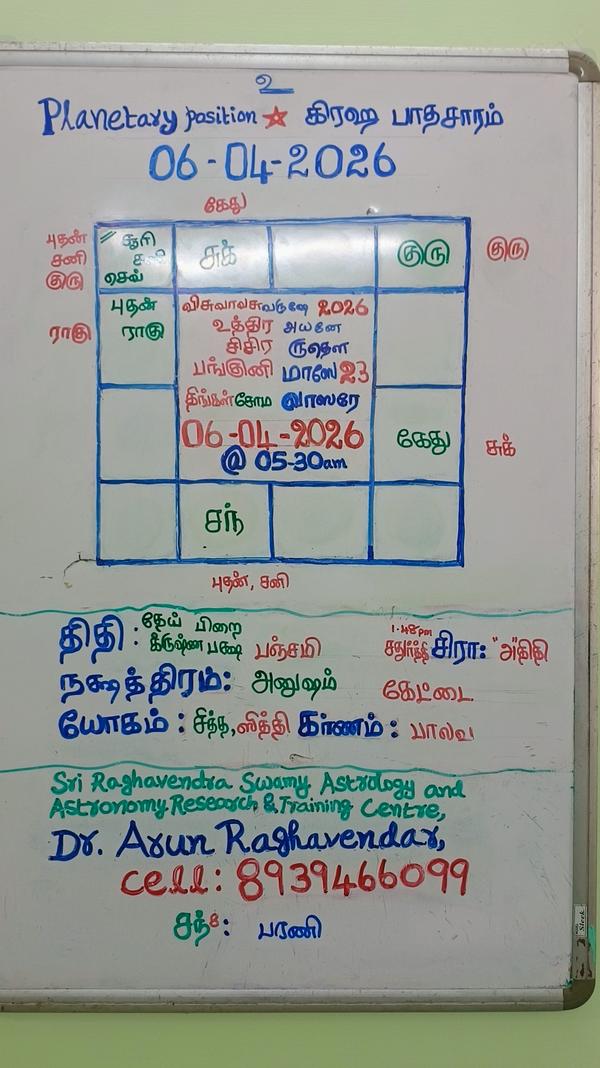 உ
Planetary position ☆ கிரஹ பாதசாரம்
06-04-2026
கேது
புதன்
சனி
குரு
சூரி
சனி
செவ்
சுக்
குரு
குரு
ராகு
புதன்
ராகு
விசுவாவசுவருஷே 2026
உத்திர அயனே
சிசிர ருதௌ
பங்குனி மாஸே 23
திங்கள் சோம வாஸரே
06-04-2026
@ 05-30am
கேது
சுக்
சந்
புதன், சனி
திதி : தேய் பிறை
க்ருஷ்ண பக்ஷ பஞ்சமி
1.48pm
சதுர்த்தி சிரா: "அ"திதி
நக்ஷத்திரம்: அனுஷம் கேட்டை
யோகம் : சித்த, ஸித்தி கர்ணம் : பாலவ
Sri Raghavendra Swamy Astrology and
Astronomy Research & Training Centre,
Dr. Arun Raghavendar,
cell: 8939466099
சந்8: பரணி